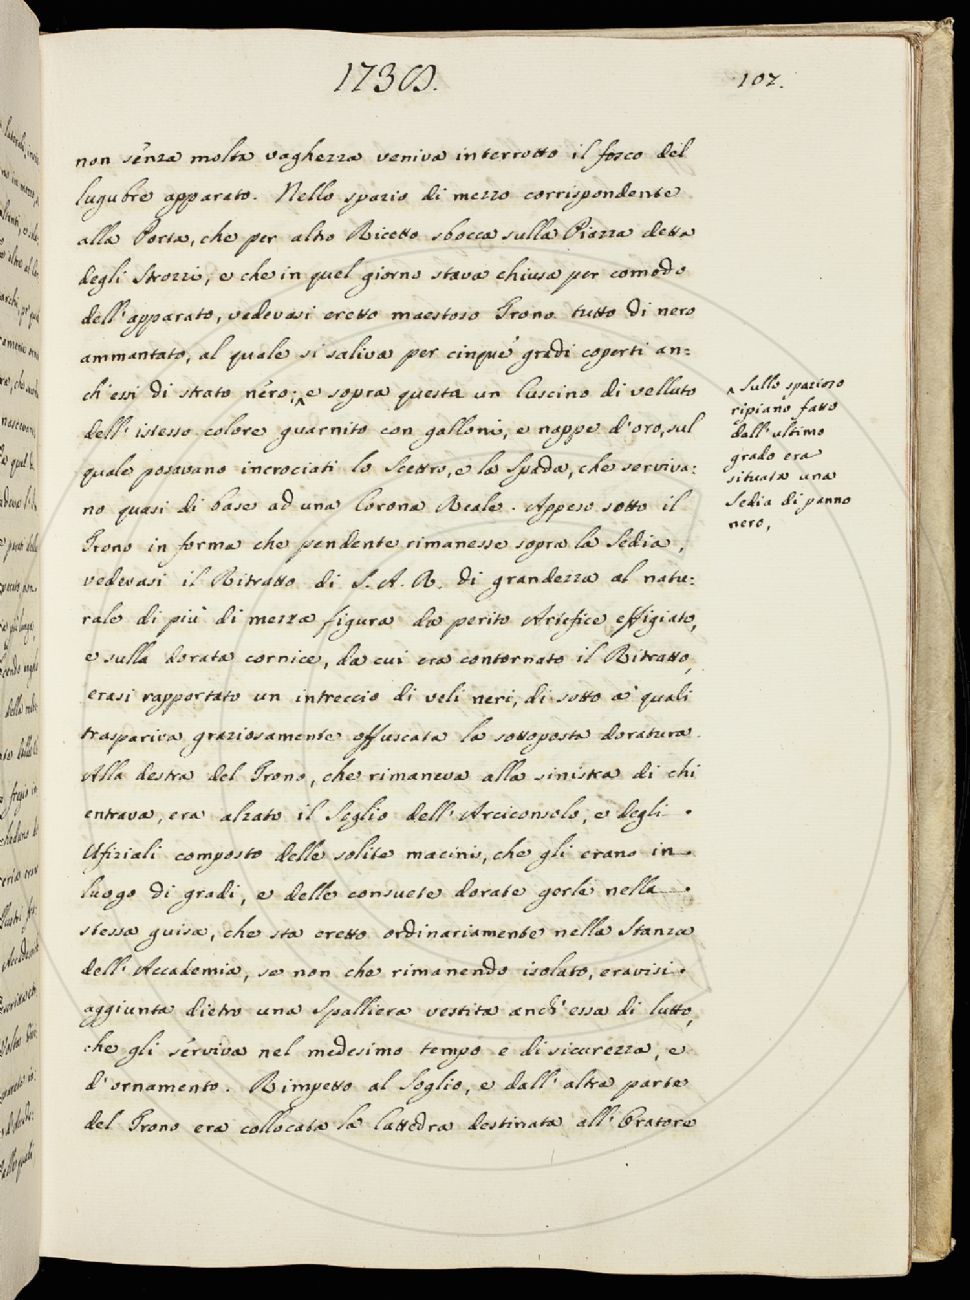 1738.
107.
non senza molta vaghezza veniva interrotto il fosco del
lugubre apparato. Nello spazio di mezzo corrispondente
alla Porta, che per altro Ricetto sbocca sulla Piazza detta
degli Strozzi, e che in quel giorno stava chiusa per comodo
dell'apparato, vedevasi eretto maestoso Trono tutto di nero
ammantato, al quale si saliva per cinque gradi coperti an=
ch'essi di strato nero; ^ e sopra questa un Cuscino di velluto
dell'istesso colore guarnito con galloni, e nappe d'oro, sul
quale posavano incrociati lo Scettro, e la Spada, che serviva=
no quasi di base ad una Corona Reale. Appeso sotto il
Trono in forma che pendente rimanesse sopra la Sedia,
vedevasi il Ritratto di S. A. R. di grandezza al natu=
rale di più di mezza figura da perito Artefice effigiato,
e sulla dorata cornice, da cui era contornato il Ritratto,
erasi rapportato un intreccio di veli neri, di sotto a' quali
traspariva graziosamente offuscata la sottoposta doratura.
Alla destra del Trono, che rimaneva alla sinistra di chi
entrava, era alzato il Seglio dell'Arciconsolo, e degli
Ufiziali composto delle solite macini, che gli erano in
luogo di gradi, e delle consuete dorate gerle nella
stessa guisa, che sta eretto ordinariamente nella Stanza
dell'Accademia, se non che rimanendo isolato, eravisi
aggiunta dietro una Spalliera vestita anch'essa di lutto,
che gli serviva nel medesimo tempo e di sicurezza, e
d'ornamento. Rimpetto al Soglio, e dall'altra parte
del Trono era collocata la Cattedra destinata all'Oratore
^ Sullo spazioso
ripiano fatto
dall'ultimo
grado era
situata una
Sedia di panno
nero,